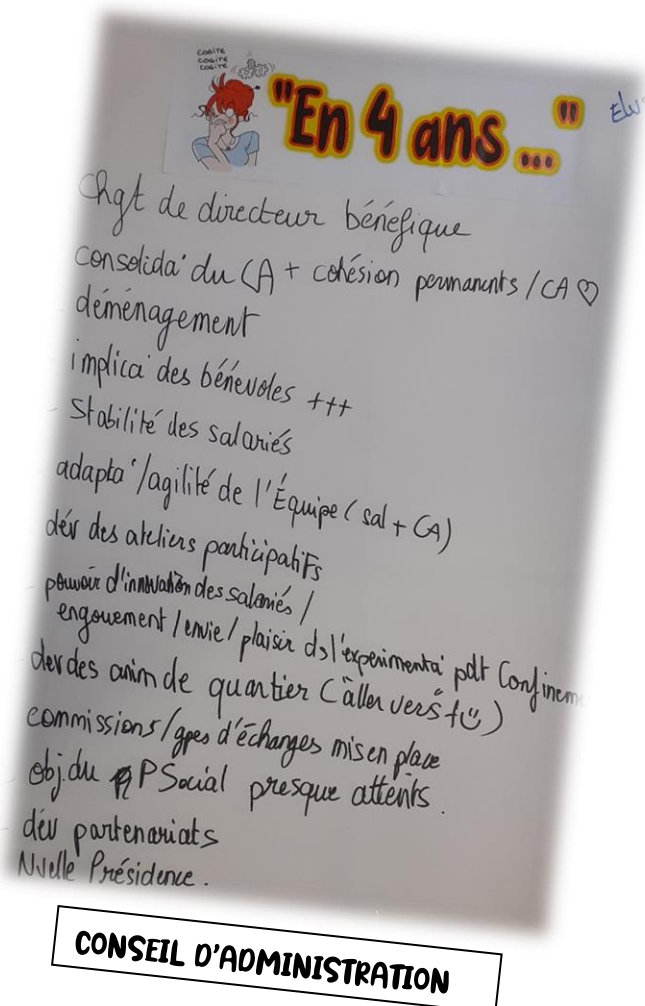 COGITE
COGITE
COGITE
"En 4 ans ..."
Chgt de directeur bénéfique
consolida° du CA + cohésion permanents / CA ♡
déménagement
implica° des bénévoles +++
Stabilité des salariés
adapta°/agilité de l'Équipe (sal + CA)
dév des ateliers participatifs
pouvoir d'innovation des salariés /
engouement / envie / plaisir ds l'expérimenta° pdt Confinem
dev des anim de quartier (aller vers + ☺)
commissions/gpes d'échanges mis en place
obj. du P Social presque atteints.
dév partenariats
Nvelle Présidence.
CONSEIL D'ADMINISTRATION